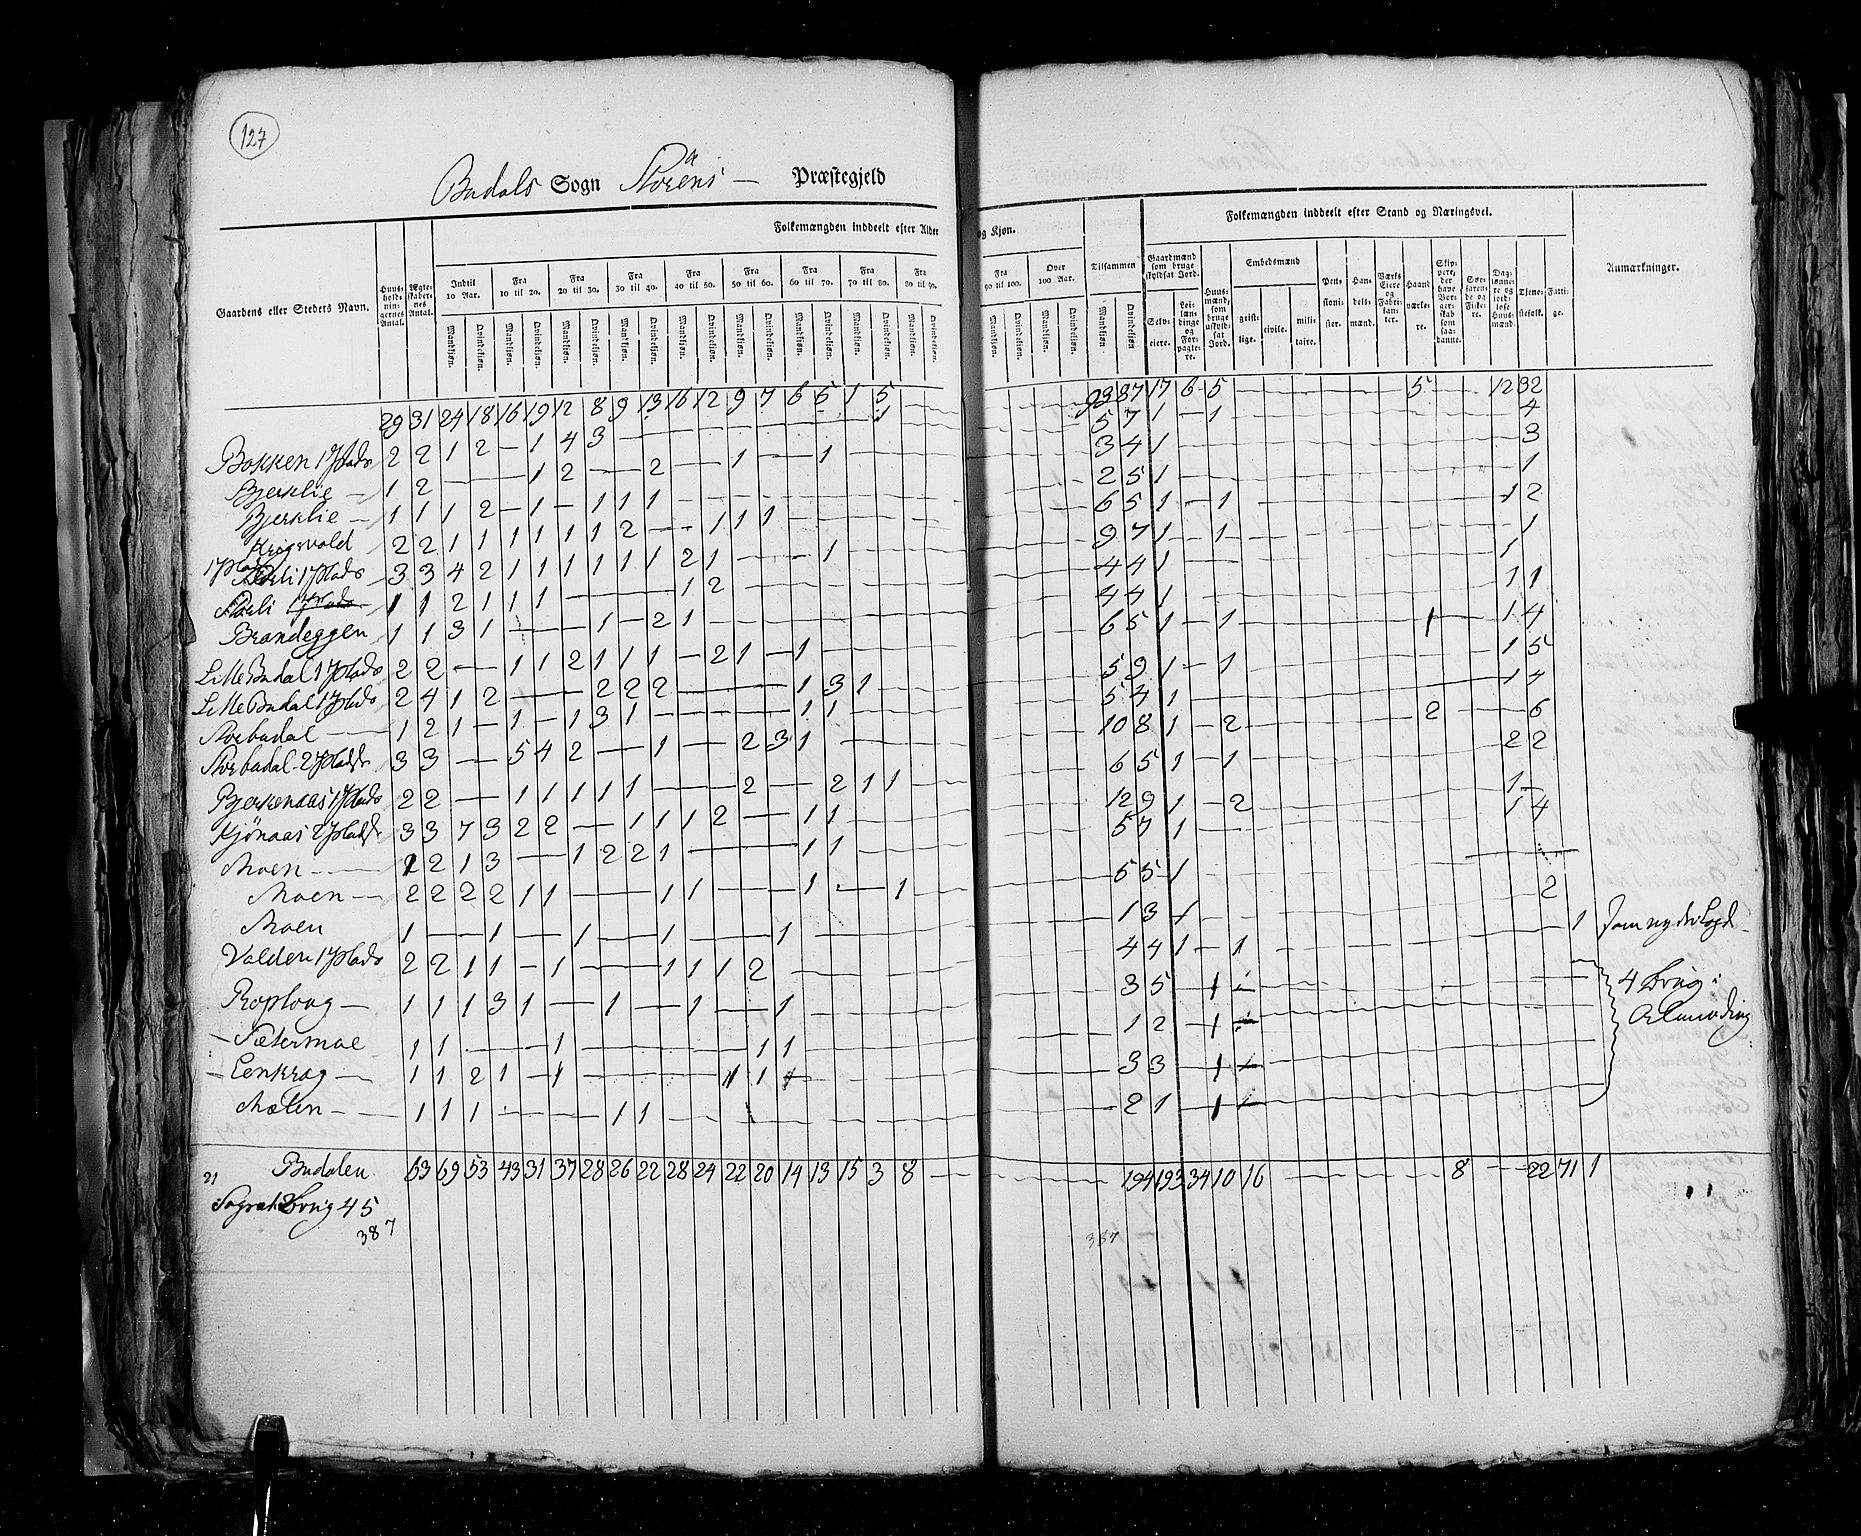 127
Budals Sogn Störens — Præstegjeld
Folkemængden inddeelt efter Alder og Kjøn. Folkemængden inddeelt efter Stand og Næringsvei.
Gaardens eller Steders Navn. Huusholdningernes Antal. Ægteskabernes Antal. Indtil 10 Aar. Fra 10 til 20. Fra 20 til 30. Fra 30 til 40. Fra 40 til 50. Fra 50 til 60. Fra 60 til 70. Fra 70 til 80. Fra 80 til 90. Fra 90 til 100. Over 100 Aar. Tilsammen Gaardmænd som bruge skyldsat Jord. Huusmænd, som bruge uskyldsat Jord. Embedsmænd Pensionister. Handelsmænd. Værks Eiere og Fabrikanter. Haandværkere. Skippere, der have Borgerskab som saadanne. Søefarende og Fiskere. Daglønnere og jordløse Huusmænd. Tjenestefolk. Fattige. Anmærkninger.
Mandkjøn. Qvindekjøn. Mandkjøn. Qvindekjøn. Mandkjøn. Qvindekjøn. Mandkjøn. Qvindekjøn. Mandkjøn. Qvindekjøn. Mandkjøn. Qvindekjøn. Mandkjøn. Qvindekjøn. Mandkjøn. Qvindekjøn. Mandkjøn. Qvindekjøn. Mandkjøn. Qvindekjøn. Mandkjøn. Qvindekjøn. Mandkjøn. Qvindekjøn. Selveiere. Leilændinge og Forpagtere. geistlige. civile. militaire.
29 31 24 18 16 19 12 8 9 13 16 12 9 7 6 5 1 5 93 87 17 6 5 5 12 32
Bokken 1 Plads 2 2 1 2 — 1 4 3 — 1 5 7 1 — 1 4
Bjerklie — 1 2 — 1 2 — 2 — 1 — 1 3 4 1 3
Bjerklie — 1 1 1 2 — 1 — 1 1 1 2 5 1 1
Krogsvold 2 2 1 1 1 1 1 1 2 — 1 1 1 6 5 1 — 1 1 2
1 Plads
1 Plads 3 3 4 2 1 1 1 1 1 1 2 1 — 1 9 7 1 — 1 1
Storli 1 1 2 1 1 1 — 1 2 4 4 1 1
Brandeggen 1 1 3 1 — 1 — 2 1 4 4 1 1 1
Lille Budal 1 Plads 2 2 — 1 1 2 1 1 1 — 2 1 — 1 6 5 1 — 1 1 1 4
Lille Budal 1 Plads 2 4 1 2 — 2 2 2 — 1 3 1 5 9 1 — 1 1 5
Storbudal — 1 2 1 — 1 — 1 3 1 — 1 1 5 4 1 1 4
Storbudal 2 Pladse 3 3 — 5 4 2 — 1 — 2 3 1 10 8 1 — 2 2 6
Bjerkenaas 1 Plads 2 2 — 1 1 1 1 1 — 2 — 2 1 1 6 5 1 — 1 2 2
Kjönaas 2 Pladse 3 3 7 3 2 2 — 1 1 1 2 — 1 1 12 9 1 — 2 1 —
Moen — 2 2 1 3 — 1 2 2 1 — 1 1 5 7 1 1 4
Moen — 2 2 2 2 1 1 — 1 1 — 1 — 1 5 5 1 —
Moen 1 — 1 — 1 — 1 — 1 1 3 1 2
Volden 1 Plads 2 2 1 1 — 1 — 1 1 1 2 4 4 1 — 1 1
— 1 1 1 3 1 — 1 — 1 — 1 3 5 — 1 4 Brug i
— Sætermoe 1 1 — 1 — 1 1 1 2 — 1
— Eenkrog — 1 1 2 1 — 1 — 1 1 3 3 — 1
Mælen — 1 1 1 — 1 1 2 1 — 1
21 Budalen 63 69 53 43 31 37 28 26 22 28 24 22 20 14 13 15 3 8 194 193 34 10 16 8 22 71 1
Brug 45
387 387